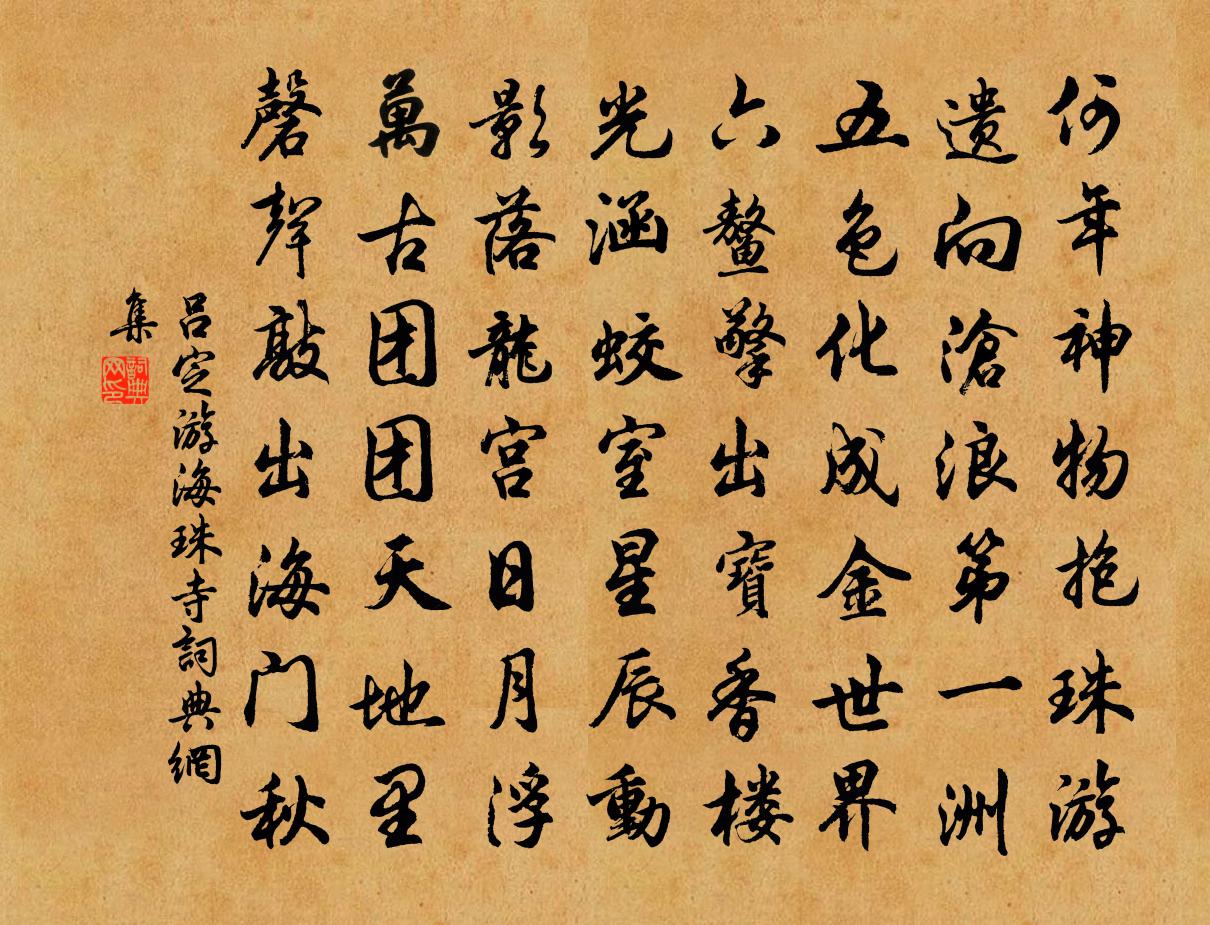 何年神物抱珠游
遗向滄浪第一洲
五色化成金世界
六鳌擎出寶香楼
光涵蛟室星辰動
影落龍宫日月浮
萬古团团天地里
磬聲敲出海门秋
吕定游海珠寺詞典網
集
詞典
网印